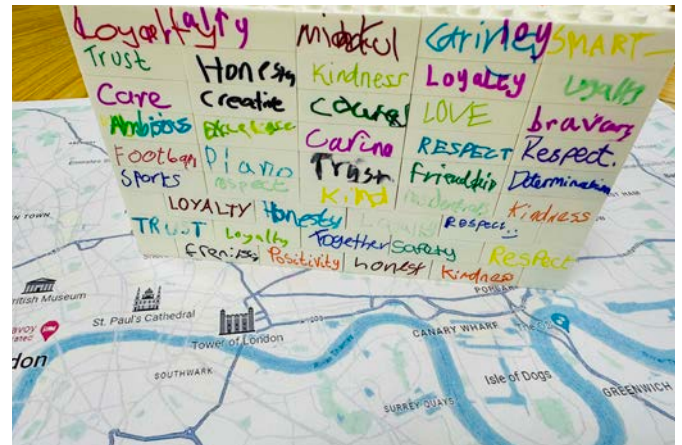 Loyalty mindful Caring SMART
Trust Honesty Kindness Loyalty Loyalty
Care Creative LOVE bravery
Ambitious Caring RESPECT Respect.
Football Piano Trust Friendship Determination
Sports respect Kind Kindness
LOYALTY Honesty Loyalty Respect
TRUST Loyalty Together Safety Respect
Positivity honest Kindness
British Museum
St. Paul's Cathedral
Tower of London
SOUTHWARK
CANARY WHARF
Isle of Dogs
SURREY QUAYS
GREENWICH